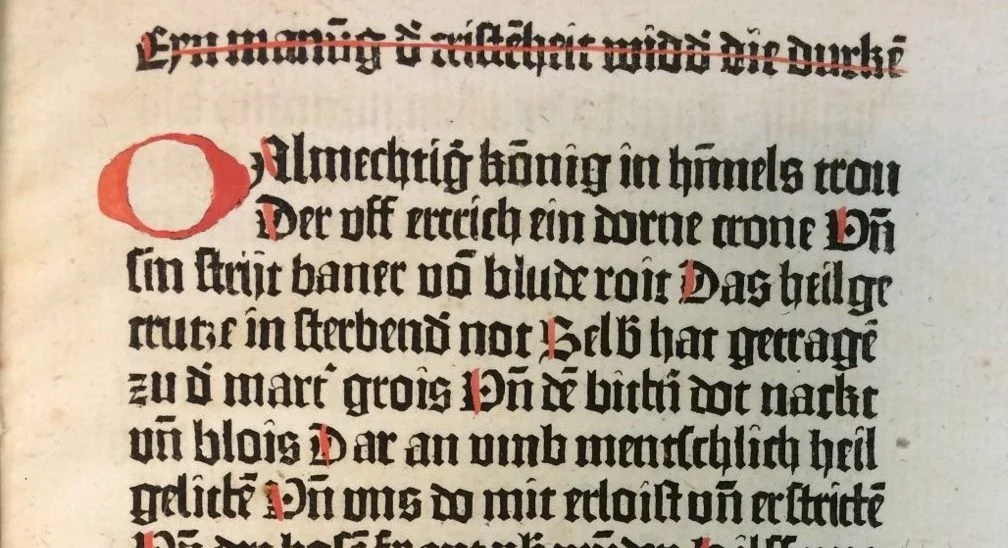 Eyn manūg d̄ cristēheit widd̄ die durkē
O Almechtiḡ kōnig in hīmels tron
Der vff ertrich ein dorne crone Vn̄
sin strijt baner vō blude roit Das heilge
crutze in sterbend̄ not Selb̄ hat getragē
zu d̄ mart̄ grois Vn̄ dē bittn̄ dot nackt
vn̄ blois Dar an vmb mentschlich heil
gelittē Vn̄ vns do mit erloist vn̄ erstrittē